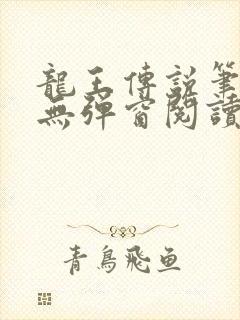 龍王傳說筆
無彈窗閱讀
青鳥飛魚